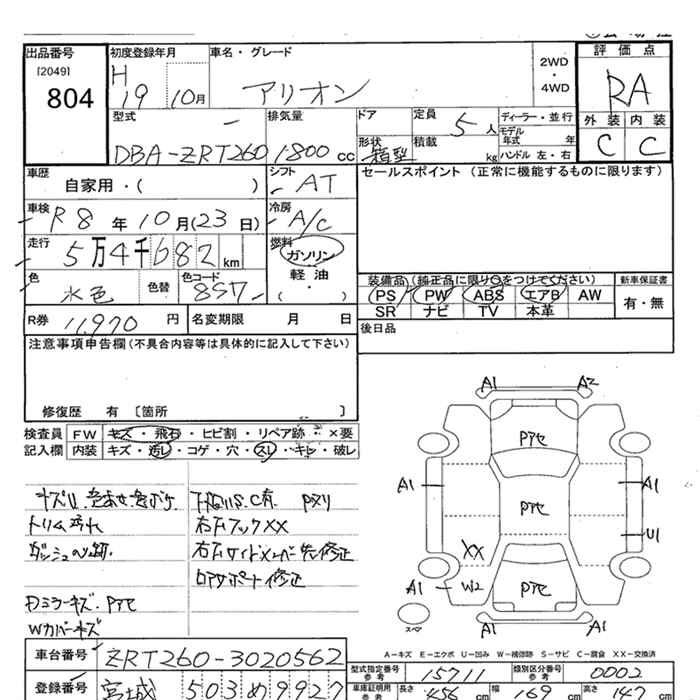 出品番号
[2049]
804
初度登録年月
H 19 10月
車名・グレード
アリオン
2WD
・
4WD
評価点
RA
外装 内装
C C
型式
DBA-ZRT260
排気量
1800 cc
ドア
形状
箱型
定員
5人
積載
kg
ディーラー・並行
モデル
年式 年
ハンドル 左・右
車歴
自家用・( )
シフト
AT
セールスポイント (正常に機能するものに限ります)
車検
R8年10月(23日)
冷房
A/C
走行
5万4千682km
燃料
ガソリン
軽油
( ・ )
色
水色
色替
色コード
8S7
装備品 (純正品に限り○をつけてください)
PS PW ABS エアB AW
SR ナビ TV 本革
新車保証書
有・無
R券 11,970円
名変期限 月 日
後日品
注意事項申告欄(不具合内容等は具体的に記入して下さい)
修復歴 有 〔箇所 〕
検査員
記入欄
FW キズ・飛石・ヒビ割・リペア跡・×要
内装 キズ・汚レ・コゲ・穴・スレ・キレ・破レ
トリム汚れ
右FフックXX
右Fサイドメンバー先修正
ロアサポート修正
Dミラーキズ.Pアセ
Wカバーキズ
A1 A2
Pアセ
A1 A1
Pアセ
U1
XX
A1 W2 Pアセ A1
スペア
A1 A1
A－キズ E－エクボ U－凹み W－補修跡 S－サビ C－腐食 XX－交換済
車台番号 ZRT260-3020562
型式指定番号
参考
15711
類別区分番号
参考
0002
登録番号 宮城 503 め 9927
車庫証明用
参考
長さ 456 cm 幅 169 cm 高さ 147 cm